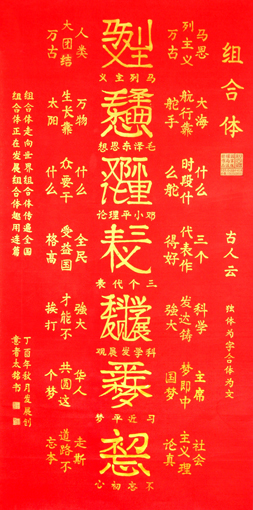 组合体
古人云
独体为字合体为文
马思
列主义
万古
马列主义
人类
大团结
万古
大海
航行靠
舵手
毛泽东思想
万物
生长靠
太阳
什么
时段什
么舵
邓小平理论
什么
众要干
什么
三个
代表作
得好
三个代表
全民
受益国
格高
科学
发达铸
强大
科学发展观
强大
才能不
挨打
主席
梦即中
国梦
习近平梦
华人
共圆这
个梦
社会
主义理
论真
不忘初心
走斯
道路不
忘本
组合体走向世界组合体传遍全国
组合体正在发展组合体趣用连篇
丁酉年秋月发展创
意者太铭书